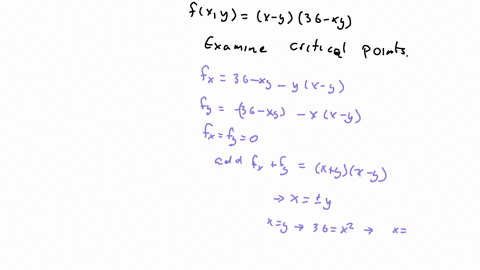 f(x,y) = (x-y)(36-xy)
Examine critical points.
fx = 36-xy - y(x-y)
fy = -(36-xy) - x(x-y)
fx = fy = 0
add fx + fy = (x+y)(x-y)
→ x = ±y
x=y → 36 = x² → x=